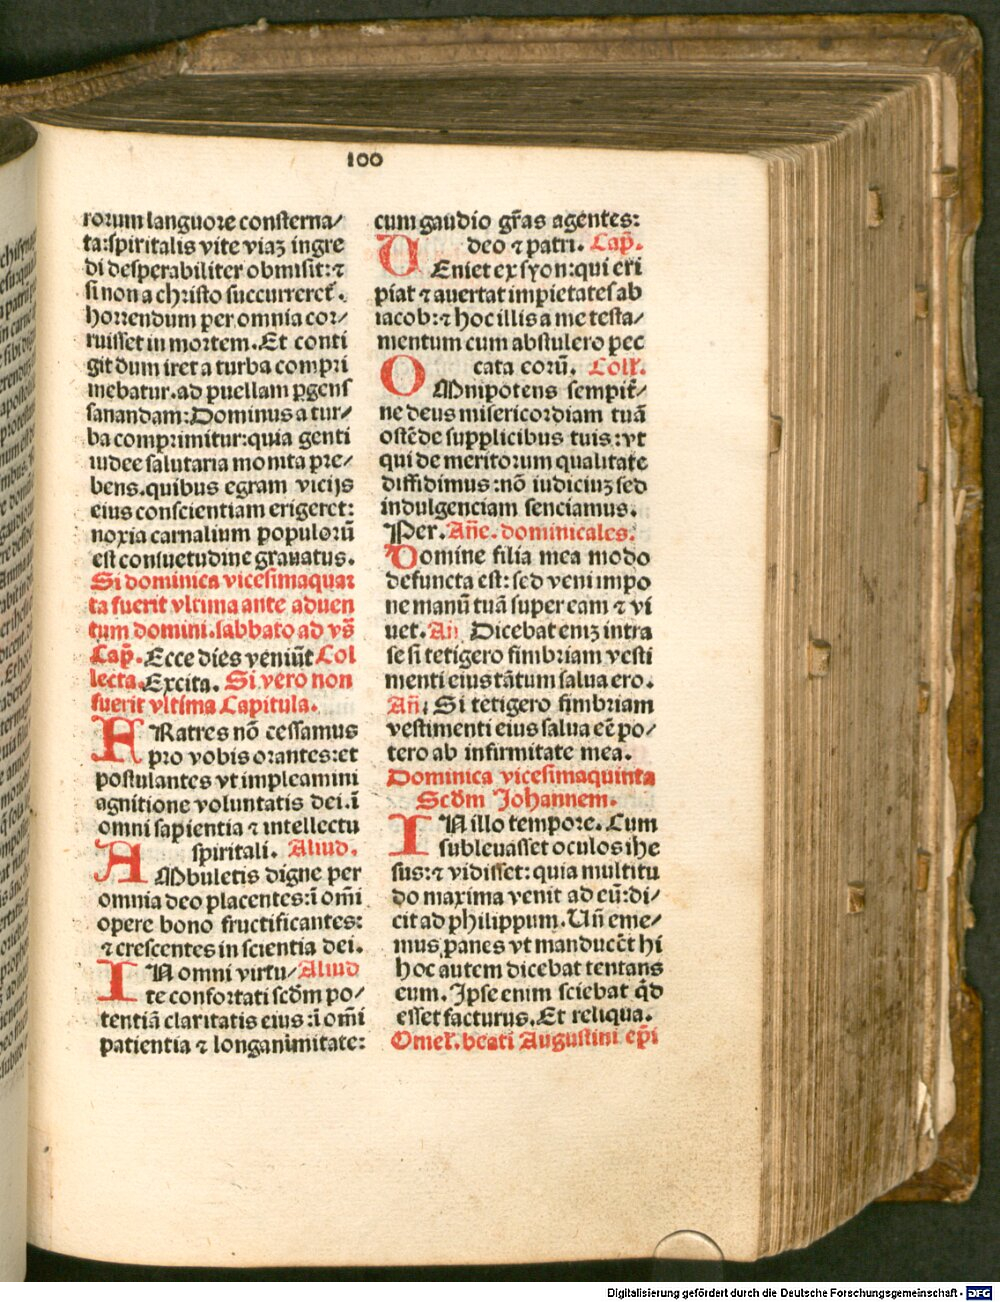 100
rorum languore consterna/
ta:spiritalis vite viaʒ ingre
di desperabiliter obmisit:⁊
si non a christo succurreret̄.
horrendum per omnia cor/
ruisset in mortem. Et conti
git dum iret a turba compri
mebatur.ad puellam ꝑgens
sanandam:Dominus a tur/
ba comprimitur:quia genti
iudee salutaria monita pre/
bens.quibus egram vicijs
eius conscientiam erigeret:
noxia carnalium populorū
est consuetudine grauatus.
Si dominica vicesimaquar
ta fuerit vltima ante aduen
tum domini.sabbato ad vs̄
Cap̄. Ecce dies veniūt Col
lecta.Excita. Si vero non
fuerit vltima Capitula.
FRatres nō cessamus
pro vobis orantes:et
postulantes vt impleamini
agnitione voluntatis dei.ī
omni sapientia ⁊ intellectu
spiritali. Aliud.
AMbuletis digne per
omnia deo placentes:ī om̄i
opere bono fructificantes:
⁊ crescentes in scientia dei.
IN omni virtu/ Aliud
te confortati scd̄m po/
tentiā claritatis eius :ī om̄i
patientia ⁊ longanimitate:
cum gaudio gr̄as agentes:
deo ⁊ patri. Cap̄.
UEniet ex syon:qui eri
piat ⁊ auertat impietates ab
iacob:⁊ hoc illis a me testa/
mentum cum abstulero pec
cata eorū. Coll̄.
OMnipotens sempit̄/
ne deus misericordiam tuā
ostēde supplicibus tuis:vt
qui de meritorum qualitate
diffidimus:nō iudiciuʒ sed
indulgenciam senciamus.
Per. Añe. dominicales.
Domine filia mea modo
defuncta est: sed veni impo
ne manū tuā super eam ⁊ vi
uet. Añ. Dicebat eniʒ intra
se si tetigero fimbriam vesti
menti eius tātum salua ero.
Añ. Si tetigero fimbriam
vestimenti eius salua eē po/
tero ab infirmitate mea.
Dominica vicesimaquinta
Scd̄m Johannem.
IN illo tempore. Cum
subleuasset oculos ihe
sus:⁊ vidisset: quia multitu
do maxima venit ad eū:di/
cit ad philippum. Uñ eme/
mus panes vt manducēt hi
hoc autem dicebat tentans
eum. Ipse enim sciebat qd̄
esset facturus. Et reliqua.
Omel̄. beati Augustini ep̄i
Digitalisierung gefördert durch die Deutsche Forschungsgemeinschaft - DFG